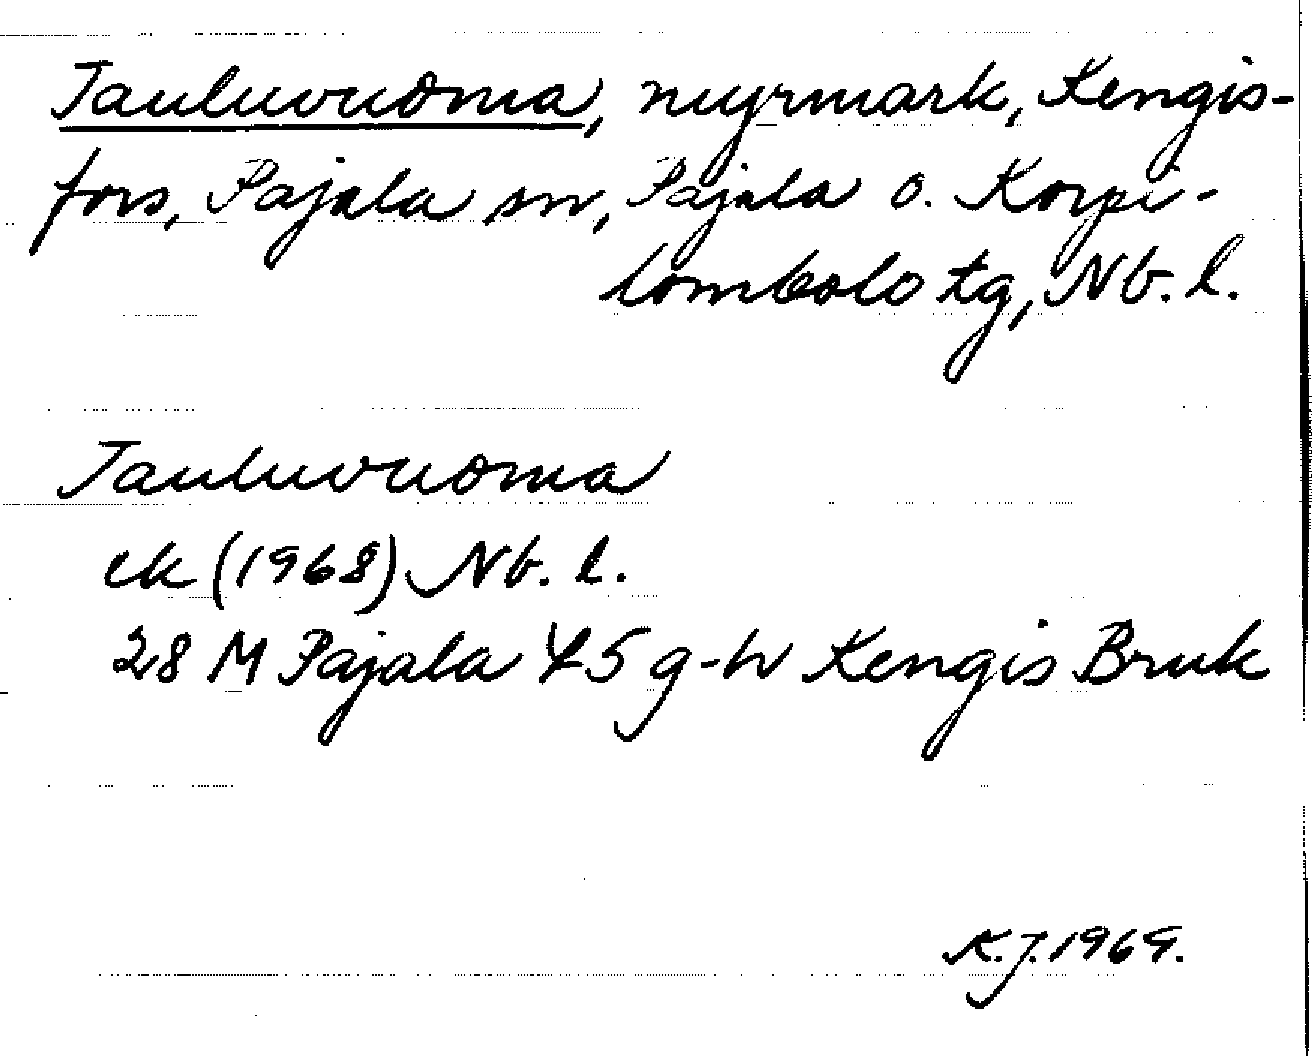 Tauluvuoma, myrmark, Kengis-
fors, Pajala sn, Pajala o. Korpi-
lombolo tg, Nb. l.
Tauluvuoma
ek (1968) Nb. l.
28 M Pajala 45 g-h Kengis Bruk
K.J. 1969.